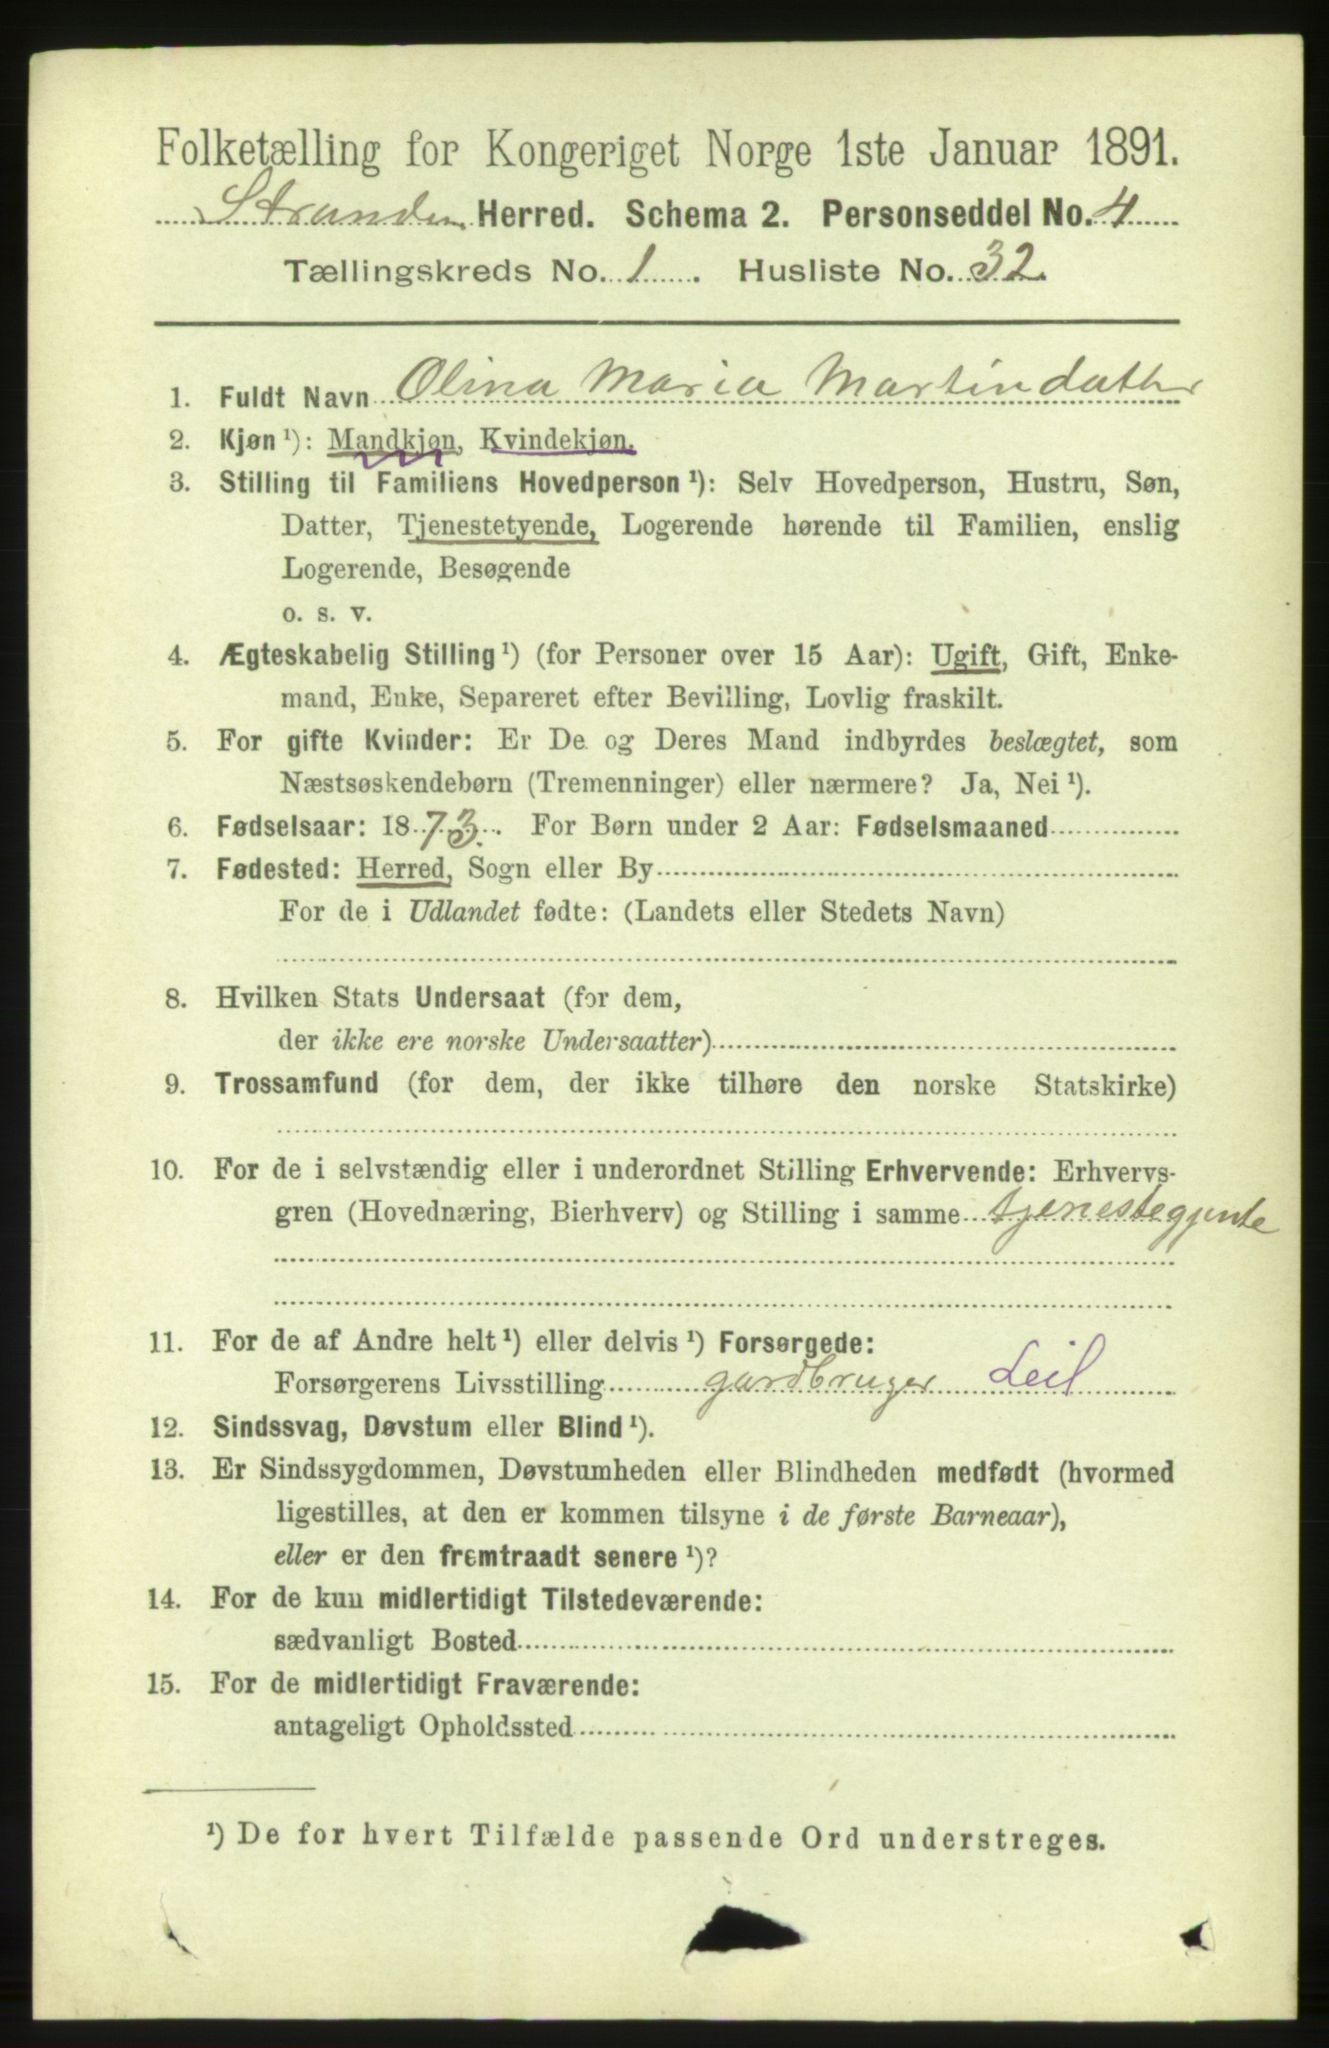 Folketælling for Kongeriget Norge 1ste Januar 1891.
Stranden Herred. Schema 2. Personseddel No. 4
Tællingskreds No. 1. Husliste No. 32.
1. Fuldt Navn Olina Maria Martindatter
2. Kjøn ¹): Mandkjøn, Kvindekjøn.
3. Stilling til Familiens Hovedperson ¹): Selv Hovedperson, Hustru, Søn,
Datter, Tjenestetyende, Logerende hørende til Familien, enslig
Logerende, Besøgende
o. s. v.
4. Ægteskabelig Stilling ¹) (for Personer over 15 Aar): Ugift, Gift, Enke-
mand, Enke, Separeret efter Bevilling, Lovlig fraskilt.
5. For gifte Kvinder: Er De og Deres Mand indbyrdes beslægtet, som
Næstsøskendebørn (Tremenninger) eller nærmere? Ja, Nei ¹).
6. Fødselsaar: 1873. For Børn under 2 Aar: Fødselsmaaned
7. Fødested: Herred, Sogn eller By
For de i Udlandet fødte: (Landets eller Stedets Navn)
8. Hvilken Stats Undersaat (for dem,
der ikke ere norske Undersaatter)
9. Trossamfund (for dem, der ikke tilhøre den norske Statskirke)
10. For de i selvstændig eller i underordnet Stilling Erhvervende: Erhvervs-
gren (Hovednæring, Bierhverv) og Stilling i samme tjenestegjente
11. For de af Andre helt ¹) eller delvis ¹) Forsørgede:
Forsørgerens Livsstilling gardbruger Leil
12. Sindssvag, Døvstum eller Blind ¹).
13. Er Sindssygdommen, Døvstumheden eller Blindheden medfødt (hvormed
ligestilles, at den er kommen tilsyne i de første Barneaar),
eller er den fremtraadt senere ¹)?
14. For de kun midlertidigt Tilstedeværende:
sædvanligt Bosted
15. For de midlertidigt Fraværende:
antageligt Opholdssted
¹) De for hvert Tilfælde passende Ord understreges.